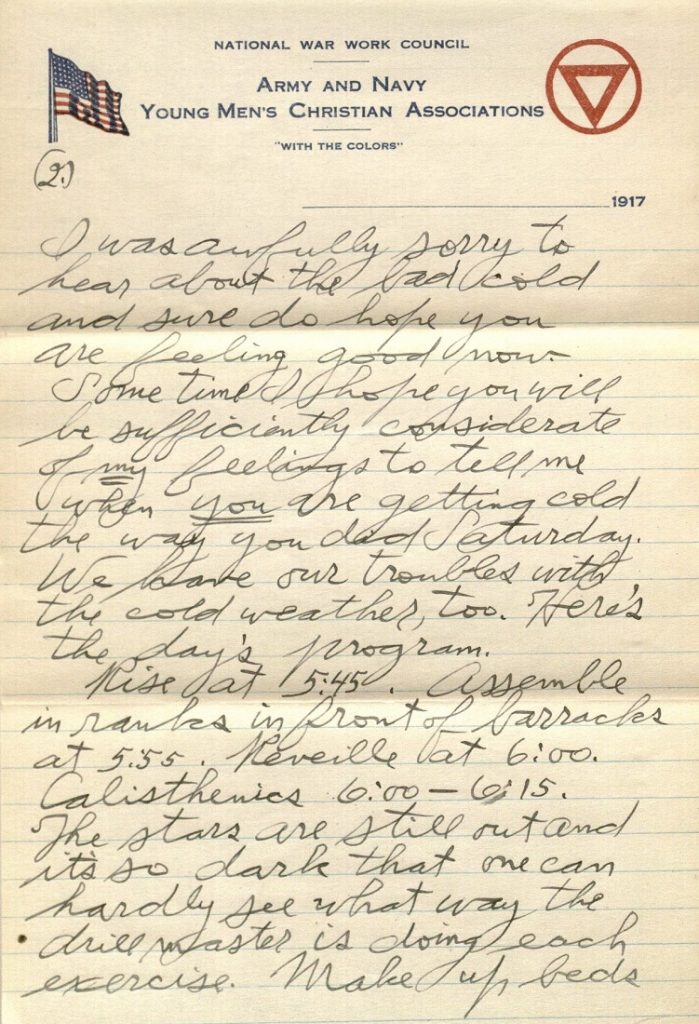 NATIONAL WAR WORK COUNCIL
ARMY AND NAVY
YOUNG MEN'S CHRISTIAN ASSOCIATIONS
"WITH THE COLORS"
(2.)
1917
I was awfully sorry to
hear about the bad cold
and sure do hope you
are feeling good now.
Some time I hope you will
be sufficiently considerate
of my feelings to tell me
when you are getting cold
the way you did Saturday.
We have our troubles with
the cold weather, too. Here's
the day's program.
Rise at 5:45. Assemble
in ranks in front of barracks
at 5:55. Reveille at 6:00.
Calisthenics 6:00 – 6:15.
The stars are still out and
it's so dark that one can
hardly see what way the
drill master is doing each
exercise. Make up beds